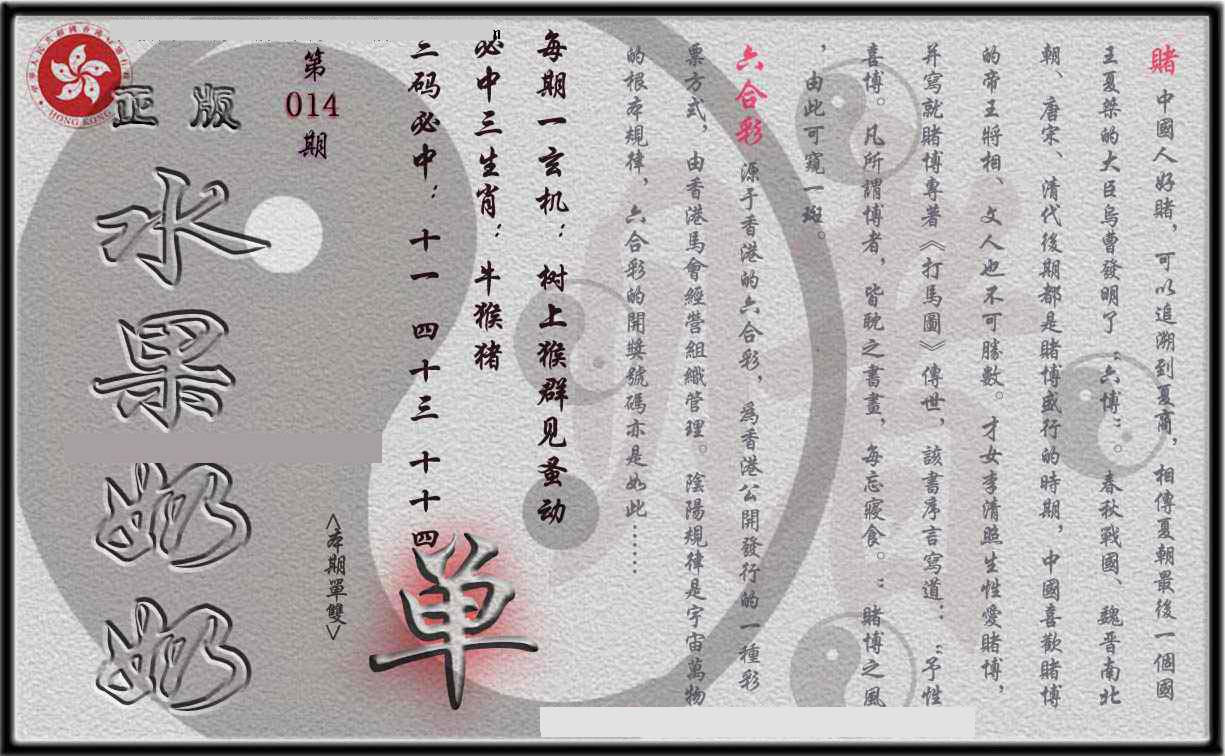 賭 中國人好賭，可以追溯到夏商，相傳夏朝最後一個國
王夏桀的大臣烏曹發明了“六博”。春秋戰國、魏晉南北
朝、唐宋、清代後期都是賭博盛行的時期，中國喜歡賭博
的帝王將相、文人也不可勝數。才女李清照生性愛賭博，
并寫就賭博專著《打馬圖》傳世，該書序言寫道：“予性
喜博。凡所謂博者，皆耽之書畫，每忘寢食。”賭博之風
，由此可窺一斑。
六合彩 源于香港的六合彩，為香港公開發行的一種彩
票方式，由香港馬會經營組織管理。陰陽規律是宇宙萬物
的根本規律，六合彩的開獎號碼亦是如此……
每期一玄机：树上猴群见蚤动
必中三生肖：牛猴猪
三码必中：十一 四十三 十十四
单
<本期單雙>
第
014
期
正版
水果奶奶
HONG KONG